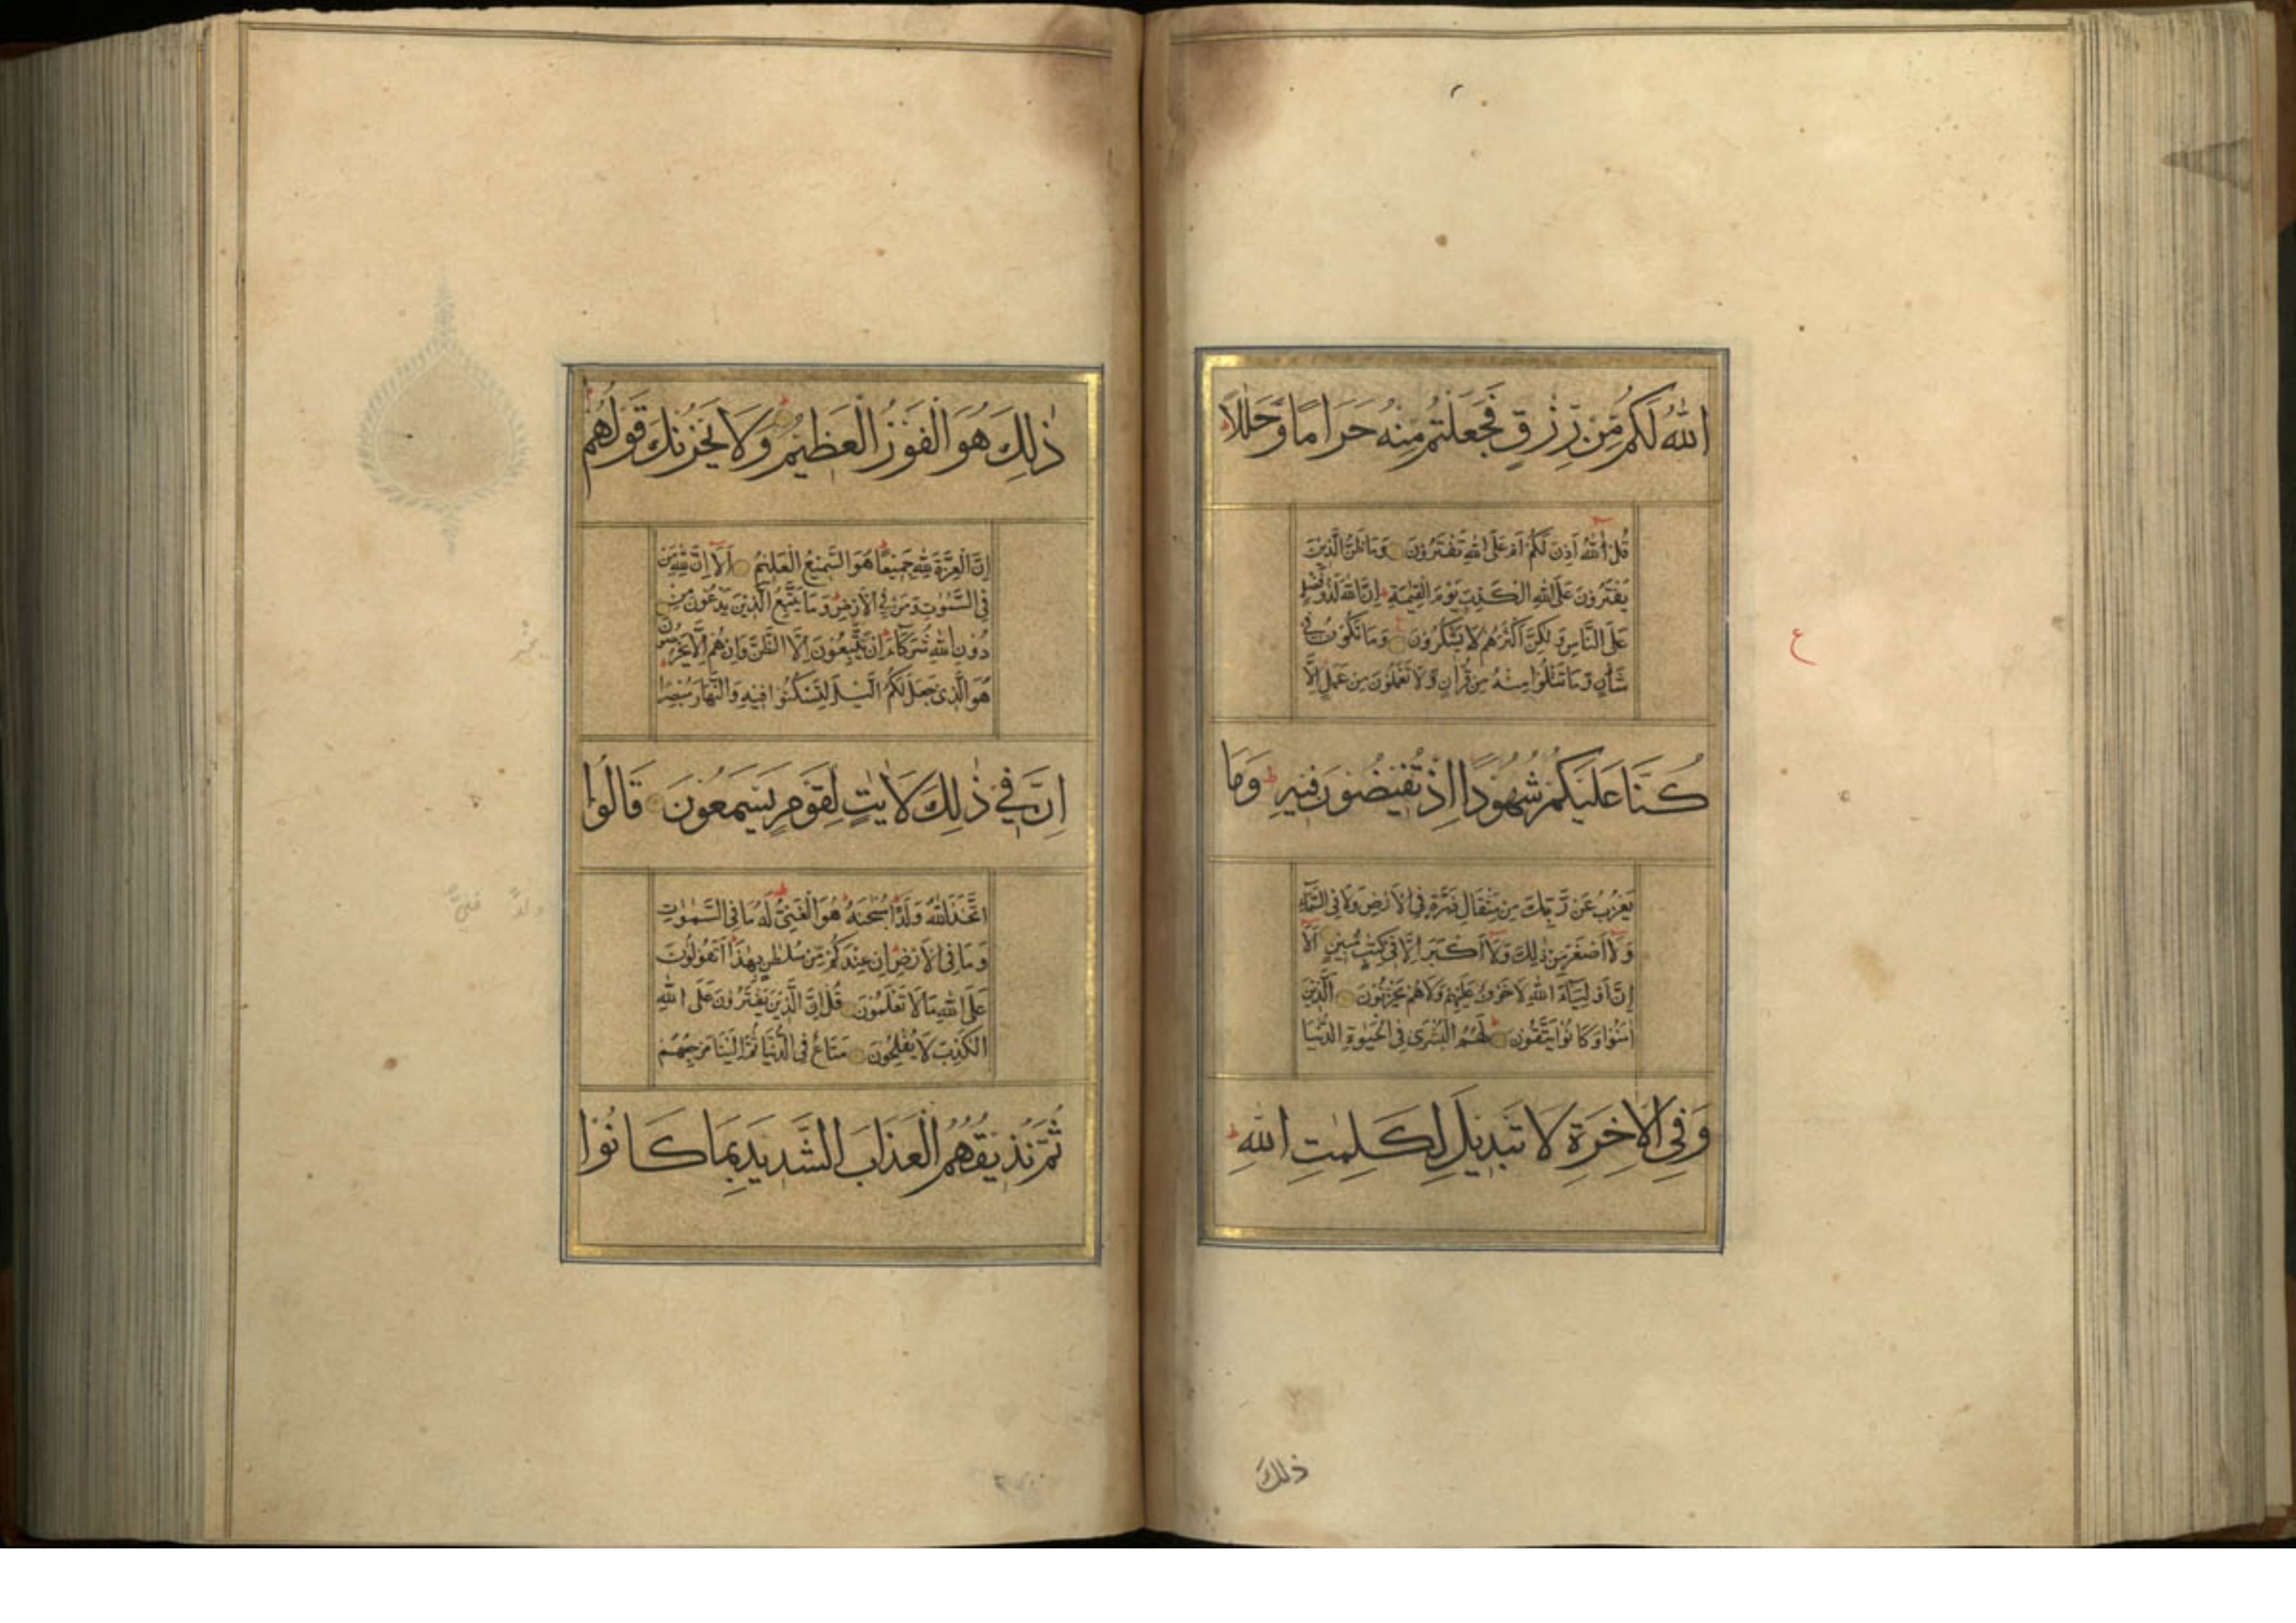 اللّٰهُ لَكُم مِّن رِّزْقٍ فَجَعَلْتُم مِّنْهُ حَرَامًا وَّحَلٰلًا
قُلْ آللّٰهُ اَذِنَ لَكُمْ اَمْ عَلَى اللّٰهِ تَفْتَرُوْنَ وَمَا ظَنُّ الَّذِيْنَ
يَفْتَرُوْنَ عَلَى اللّٰهِ الْكَذِبَ يَوْمَ الْقِيٰمَةِ اِنَّ اللّٰهَ لَذُوْ فَضْلٍ
عَلَى النَّاسِ وَلٰكِنَّ اَكْثَرَهُمْ لَا يَشْكُرُوْنَ وَمَا تَكُوْنُ فِي
شَاْنٍ وَّمَا تَتْلُوْا مِنْهُ مِنْ قُرْاٰنٍ وَّلَا تَعْمَلُوْنَ مِنْ عَمَلٍ اِلَّا
كُنَّا عَلَيْكُمْ شُهُوْدًا اِذْ تُفِيْضُوْنَ فِيْهِ وَمَا
يَعْزُبُ عَنْ رَّبِّكَ مِنْ مِّثْقَالِ ذَرَّةٍ فِي الْاَرْضِ وَلَا فِي السَّمَآءِ
وَلَآ اَصْغَرَ مِنْ ذٰلِكَ وَلَآ اَكْبَرَ اِلَّا فِيْ كِتٰبٍ مُّبِيْنٍ اَلَآ
اِنَّ اَوْلِيَآءَ اللّٰهِ لَا خَوْفٌ عَلَيْهِمْ وَلَا هُمْ يَحْزَنُوْنَ الَّذِيْنَ
اٰمَنُوْا وَكَانُوْا يَتَّقُوْنَ لَهُمُ الْبُشْرٰى فِي الْحَيٰوةِ الدُّنْيَا
وَفِي الْاٰخِرَةِ لَا تَبْدِيْلَ لِكَلِمٰتِ اللّٰهِ
ذٰلِكَ
ع
ذٰلِكَ هُوَ الْفَوْزُ الْعَظِيْمُ وَلَا يَحْزُنْكَ قَوْلُهُمْ
اِنَّ الْعِزَّةَ لِلّٰهِ جَمِيْعًا هُوَ السَّمِيْعُ الْعَلِيْمُ اَلَآ اِنَّ لِلّٰهِ مَنْ
فِي السَّمٰوٰتِ وَمَنْ فِي الْاَرْضِ وَمَا يَتَّبِعُ الَّذِيْنَ يَدْعُوْنَ مِنْ
دُوْنِ اللّٰهِ شُرَكَآءَ اِنْ يَّتَّبِعُوْنَ اِلَّا الظَّنَّ وَاِنْ هُمْ اِلَّا يَخْرُصُوْنَ
هُوَ الَّذِيْ جَعَلَ لَكُمُ الَّيْلَ لِتَسْكُنُوْا فِيْهِ وَالنَّهَارَ مُبْصِرًا
اِنَّ فِيْ ذٰلِكَ لَاٰيٰتٍ لِّقَوْمٍ يَّسْمَعُوْنَ قَالُوا
اتَّخَذَ اللّٰهُ وَلَدًا سُبْحٰنَهٗ هُوَ الْغَنِيُّ لَهٗ مَا فِي السَّمٰوٰتِ
وَمَا فِي الْاَرْضِ اِنْ عِنْدَكُمْ مِّنْ سُلْطٰنٍ بِهٰذَا اَتَقُوْلُوْنَ
عَلَى اللّٰهِ مَا لَا تَعْلَمُوْنَ قُلْ اِنَّ الَّذِيْنَ يَفْتَرُوْنَ عَلَى اللّٰهِ
الْكَذِبَ لَا يُفْلِحُوْنَ مَتَاعٌ فِي الدُّنْيَا ثُمَّ اِلَيْنَا مَرْجِعُهُمْ
ثُمَّ نُذِيْقُهُمُ الْعَذَابَ الشَّدِيْدَ بِمَا كَانُوْا